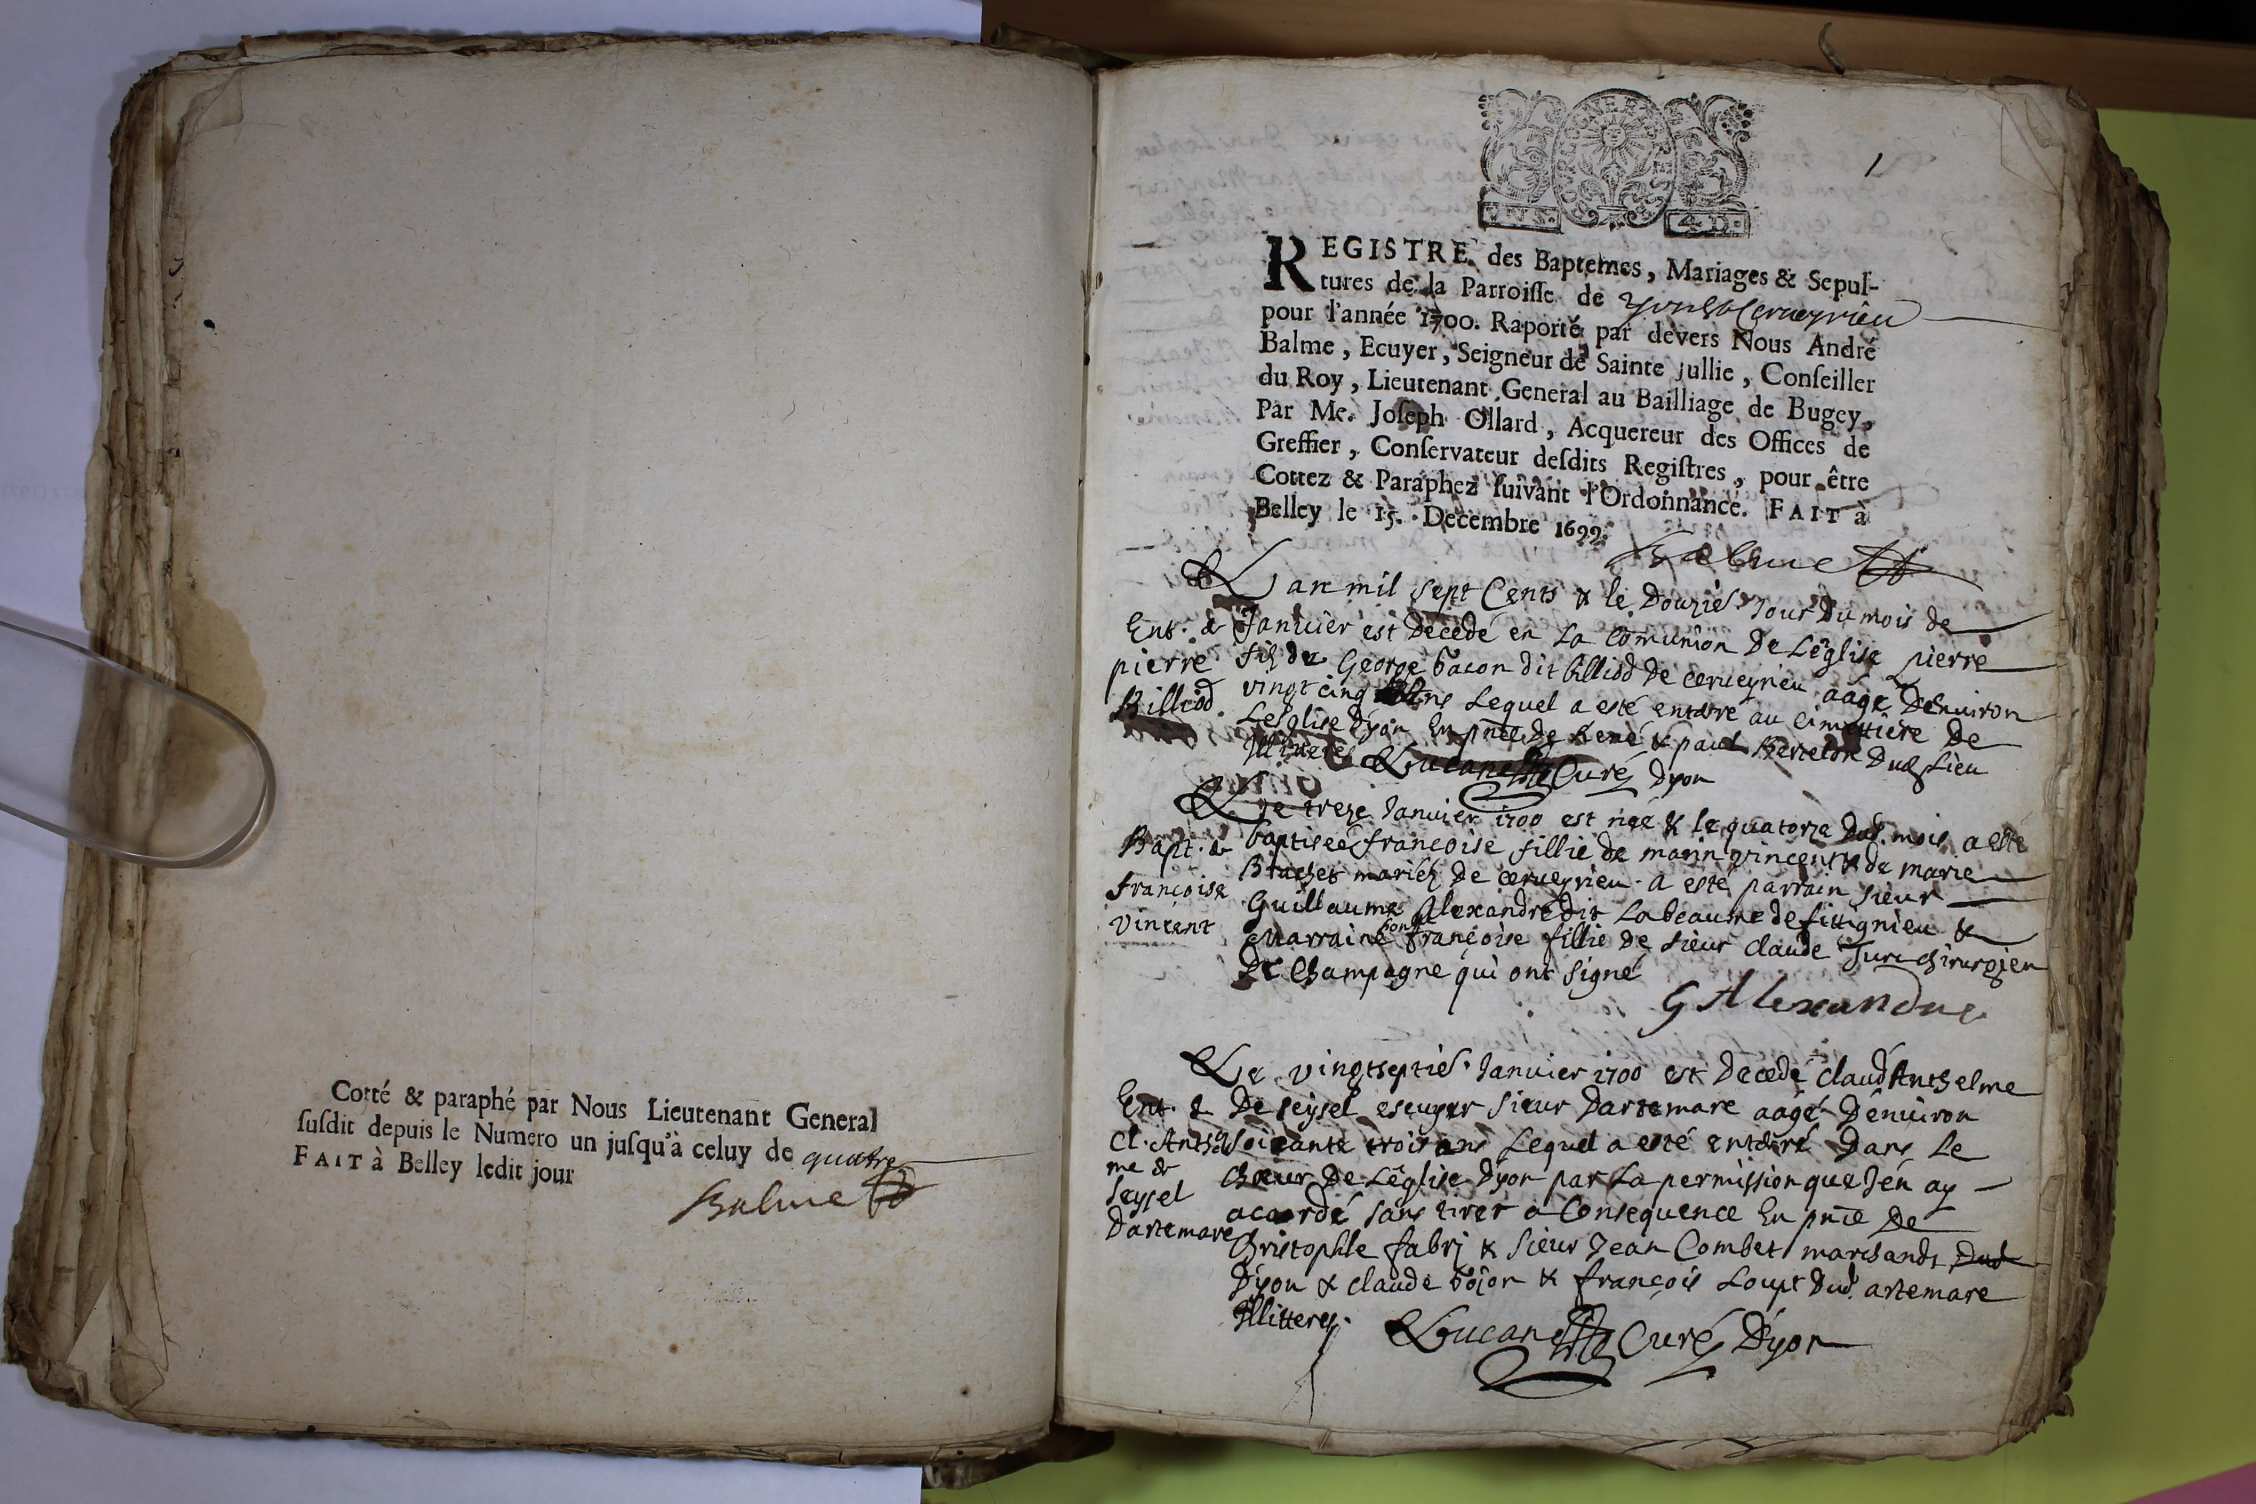 Cotté & paraphé par Nous Lieutenant General
susdit depuis le Numero un jusqu'à celuy de quatre
FAIT à Belley ledit jour
Balme
1
4 D.
REGISTRE des Baptemes, Mariages & Sepul-
tures de la Parroisse de yon & Cerveyrieu
pour l'année 1700. Raporté par devers Nous André
Balme, Ecuyer, Seigneur de Sainte Jullie, Conseiller
du Roy, Lieutenant General au Bailliage de Bugey,
Par Me. Joseph Ollard, Acquereur des Offices de
Greffier, Conservateur desdits Registres, pour être
Cottez & Paraphez suivant l'Ordonnance. FAIT à
Belley le 15. Decembre 1699.
Balme
Lan mil sept Cents & le Douzies. Jour Du mois de
Ent. de
pierre
Billiod.
Janvier est Decedé en La comunion De Léglise pierre
fils de George bacon dit billiod De cerveyrieu aagé Denviron
vingt cinq ans Lequel a esté entérré au cimettiere De
Lesglise Dyon En pnce De René & paul Berthelon Dud Lieu
Illiteres Lucan Curé Dyon
Le treze Janvier 1700 est née & le quatorze Dud. mois a esté
Bapt. de
françoise
Vincent
baptisée françoise fillie de marin vincent & de marie
Brachet mariéz De cerveyrieu. a esté parrain sieur
Guillaume Alexandre Dit Labeaume de fittignieu &
Marraine hon françoise fillie de sieur claude Jure chirurgien
De Champagne qui ont signé
G Alexandre
Le vingtseptiés. Janvier 1700 est Decedé claud Anthelme
Ent. de
Cl. Anthel
me de
seyssel
Dartemare
De seyssel escuyer sieur Dartemare aagé Dénviron
soixante trois ans Lequel a esté entérré Dans Le
chœur De Léglise Dyon par La permission que Jén ay
acordé sans tirer a Consequence En pnce De
Christophle fabri & sieur Jean Combet marchands Dud
Dyon & claude bojon & françois Loupt Dud. artemare
Illitteres.
Lucan Curé Dyon